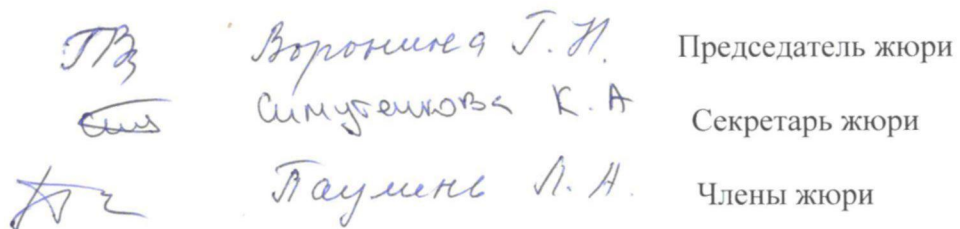 Воронина Г. И. Председатель жюри
Симутенкова К. А Секретарь жюри
Паумень Л. А. Члены жюри